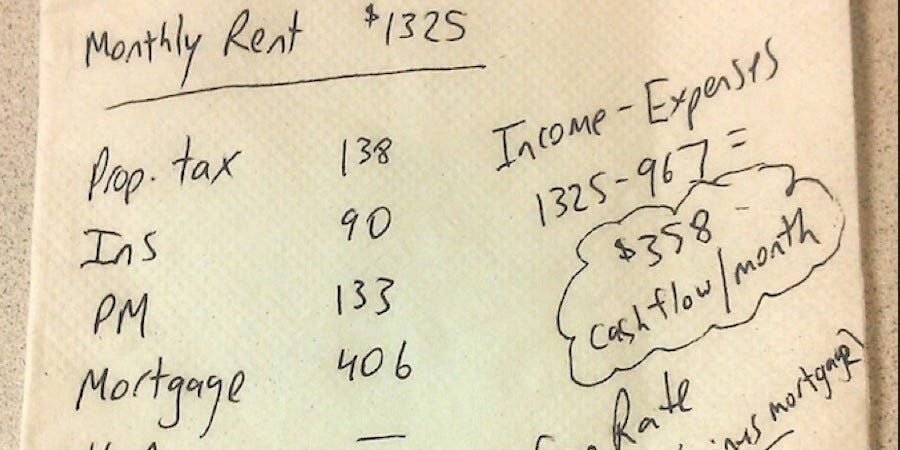 Monthly Rent $1325
Prop. tax 138
Ins 90
PM 133
Mortgage 406
—
Income - Expenses
1325-967 =
$358
cashflow/month
Rate
mortgage)